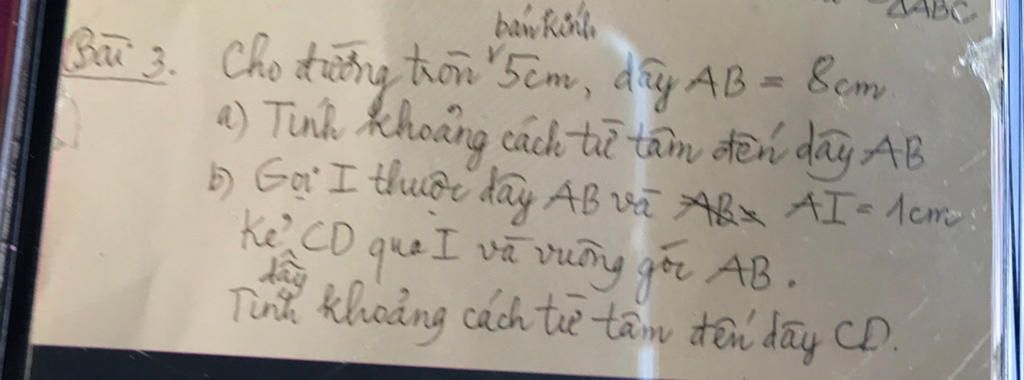 ΔABC
bán kính
Bài 3. Cho đường tròn 5cm, dây AB = 8cm.
a) Tính khoảng cách từ tâm đến dây AB
b) Gọi I thuộc dây AB và AB AI = 1cm
Kẻ CD qua I và vuông góc AB.
dây
Tính khoảng cách từ tâm đến dây CD.